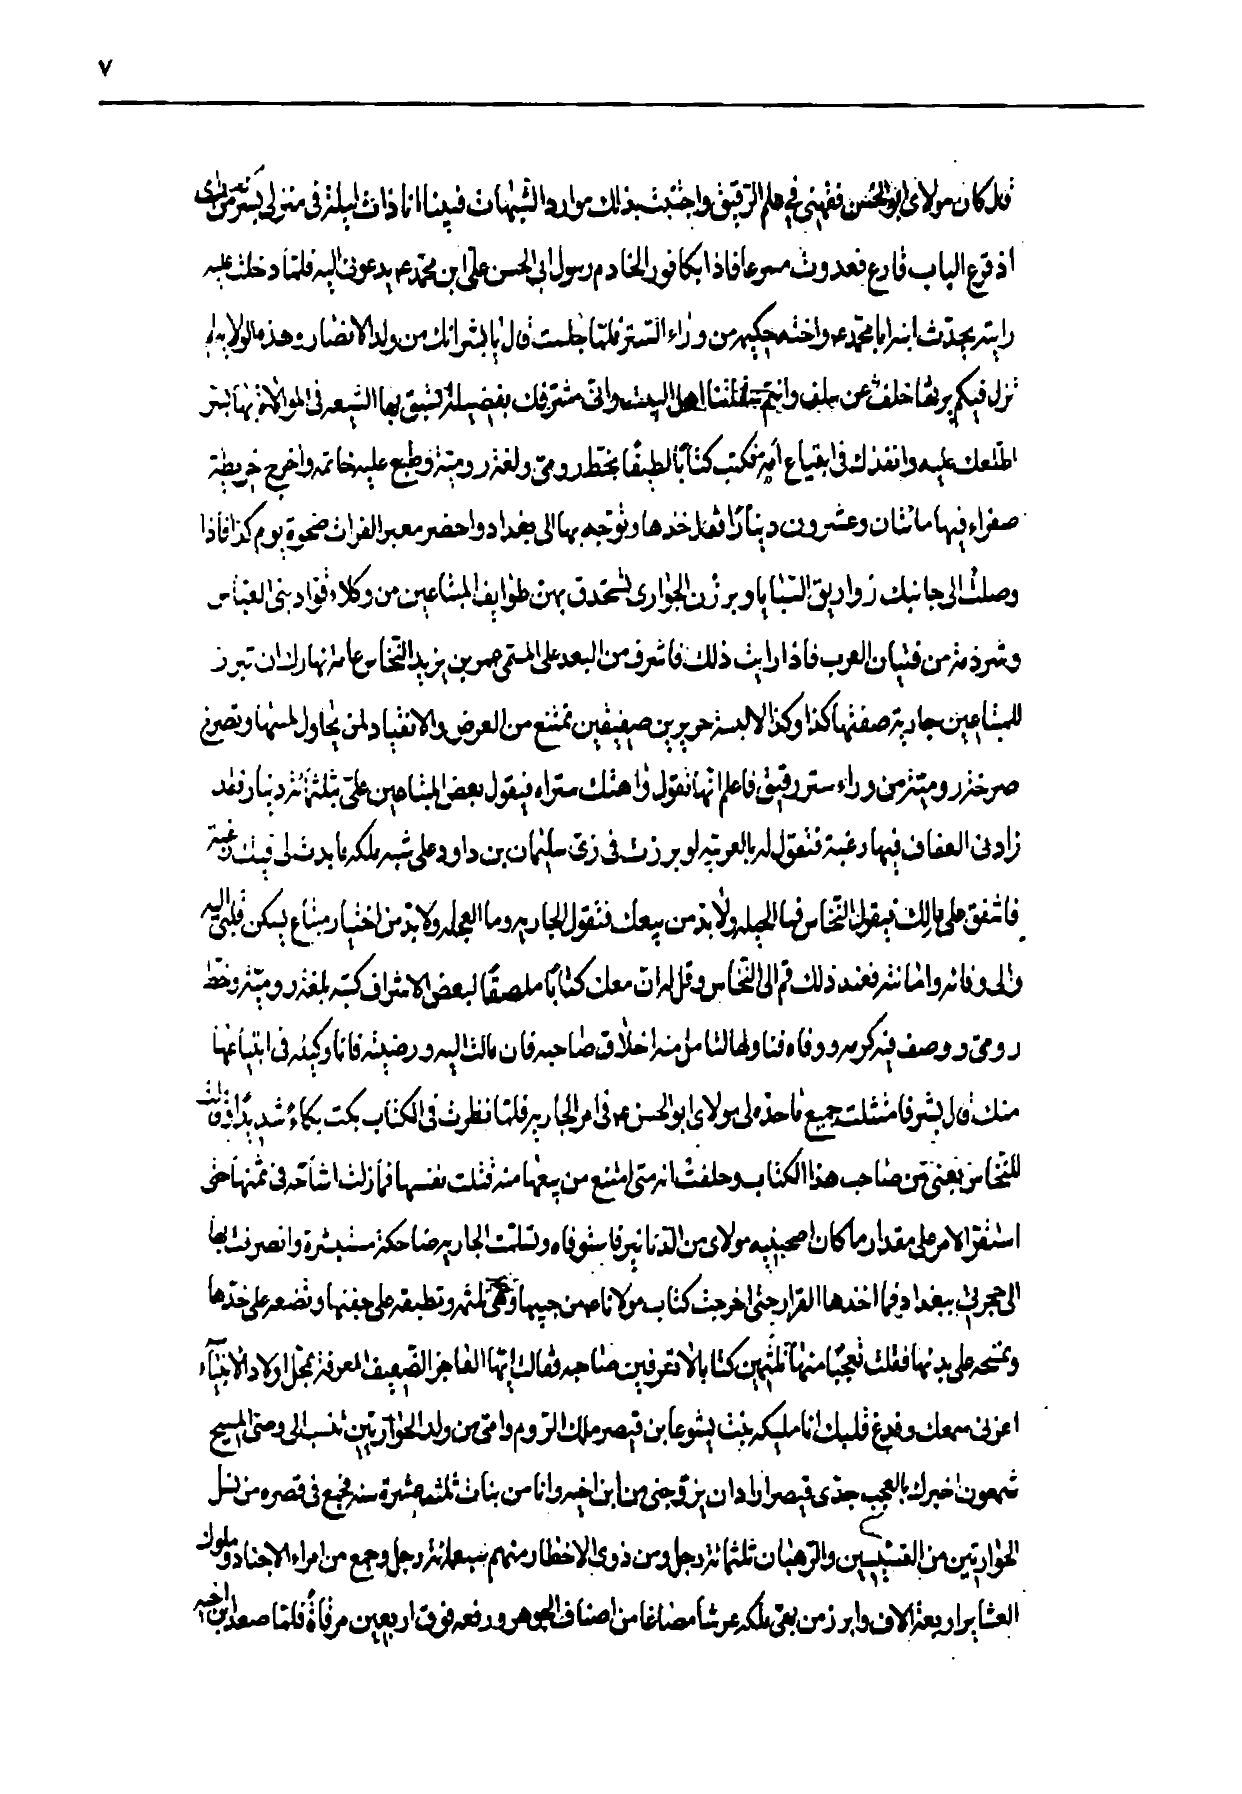 ٧
قال كان مولاى ابو الحسن فقهنى فى علم الرقيق واجتنبت بذلك موارد الشبهات فبينا انا ذات ليلة فى منزلى بسر من راى
اذ قرع الباب قارع فعدوت مسرعا فاذا بكافور الخادم رسول ابى الحسن على ابن محمد ع يدعونى اليه فلما دخلت عليه
رايته يحدث ابنه ابا محمد ع واخته حكيمه من وراء الستر فلما جلست قال يا بشر انك من ولد الانصار وهذه الولاية لم
تزل فيكم يرثها خلف عن سلف وانتم ثقاتنا اهل البيت وانى مشرفك بفضيلة تسبق بها الشيعه فى الموالاة بها بسر
اطلعك عليه وانفذك فى ابتياع امه فكتب كتابا لطيفا بخط رومى ولغة رومية وطبع عليه خاتمه واخرج خريطة
صفراء فيها مائتان وعشرون دينارا فقال خذها وتوجه بها الى بغداد واحضر معبر الفرات ضحوة يوم كذا فاذا
وصلت الى جانبك زواريق السبايا وبرزن الجوارى لتحدق بهن طوايف المبتاعين من وكلاء قواد بنى العباس
وشرذمة من فتيان العرب فاذا رايت ذلك فاشرف من البعد على المسمى عمر بن يزيد النخاس عامة نهارك ان تبرز
للمبتاعين جارية صفتها كذا وكذا لابسة حريرين صفيقين تمتنع من العرض والانقياد لمن يحاول لمسها وتصرخ
صرخة رومية من وراء ستر رقيق فاعلم انها تقول وا هتك ستراه فيقول بعض المبتاعين على بثلثمائة دينار فقد
زادنى العفاف فيها رغبة فتقول له بالعربيه لو برزت فى زى سليمان بن داود على شبه ملكه ما بدت لى فيك رغبة
فاشفق على مالك فيقول النخاس فما الحيله ولا بد من بيعك فتقول الجاريه وما العجله ولا بد من اختيار مبتاع يسكن قلبى اليه
والى وفائه وامانته فعند ذلك قم الى النخاس وقل له ان معك كتابا ملصقا لبعض الاشراف كتبه بلغة رومية وخط
رومى ووصف فيه كرمه ووفاه فناولها لتتامل منه اخلاق صاحبه فان مالت اليه ورضيته فانا وكيله فى ابتياعها
منك قال بشر فامتثلت جميع ما حده لى مولاى ابو الحسن ع فى امر الجاريه فلما نظرت فى الكتاب بكت بكاء شديدا وقالت
للنخاس بعنى من صاحب هذا الكتاب وحلفت انه متى امتنع من بيعها منه قتلت نفسها فما زلت اشاحه فى ثمنها حتى
استقر الامر على مقدار ما كان اصحبنيه مولاى من الدنانير فاستوفاه وتسلمت الجاريه ضاحكة مستبشرة وانصرفت بها
الى حجرتى ببغداد فما اخذها القرار حتى اخرجت كتاب مولانا ع من جيبها وهى تلثمه وتطبقه على جفنها وتضعه على خدها
وتمسحه على بدنها فقلت تعجبا منها تلثمين كتابا لا تعرفين صاحبه فقالت ايها العاجز الضعيف المعرفة بمحل اولاد الانبياء
اعرنى سمعك وفرغ قلبك انا مليكه بنت يشوعا بن قيصر ملك الروم وامى من ولد الحواريين تنسب الى وصى المسيح
شمعون اخبرك بالعجب جدى قيصر اراد ان يزوجنى من ابن اخيه وانا من بنات ثلثه عشرة سنه فجمع فى قصره من نسل
الحواريين من القسيسين والرهبان ثلثمائة رجل ومن ذوى الاخطار منهم سبعمائة رجل وجمع من امراء الاجناد وملوك
العشاير اربعة الاف وابرز من بهى ملكه عرشا مصاغا من اصناف الجوهر ورفعه فوق اربعين مرقاة فلما صعد ابن اخيه